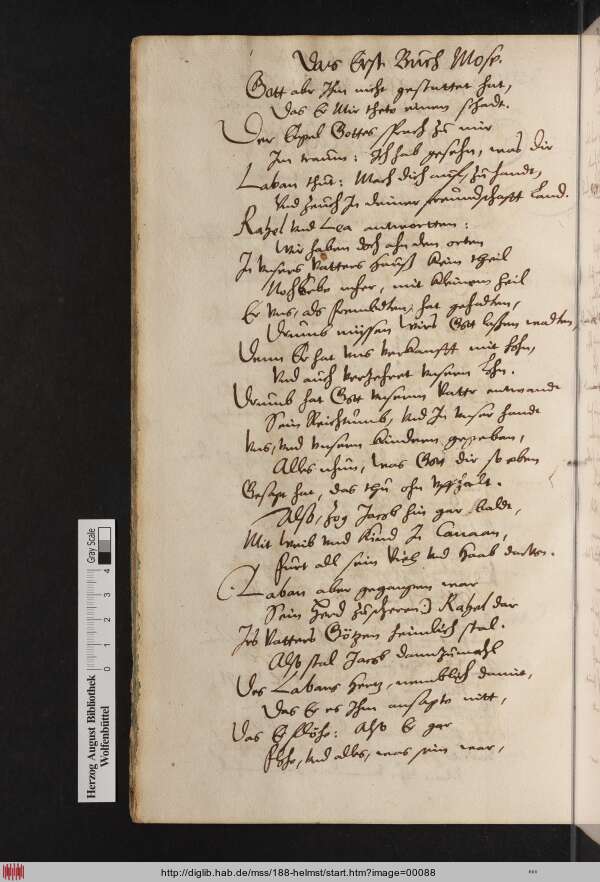 Das Erst Buch Mose.
Gott aber Ihm nicht gestattet hat,
Das Er Mir thete einen schadt.
Der Engel Gottes sprach zu mir
Im traum: Ich hab gesehn, was dir
Laban thut: Mach dich auff, zu handt,
Und zeuch In deiner freundschafft Land.
Rahel und Lea antwortten:
Wir haben doch ahn den orten
In unsers Vatters Hauß kein theil
Noch Erbe mher, mit kleinem heil
Er uns, als frembdten, hat gehalten,
Drumb müssen wirs Gott lassen walten,
Denn Er hat uns verkaufft mit hohn,
Und auch verzehret unsern Lohn.
Drumb hat Gott unserm Vatter entwandt
Sein Reichtumb, und In unser handt
Uns, und unsern kindern gegeben,
Alles nhun, was Gott dir so eben
Gesagt hat, das thu ohn
Also, zog Jacob hin gar baldt,
Mit Weib und kind In Canaan,
Fürt all sein Vieh und Haab
Laban aber gegangen war
Sein Herd zu scheren) Rahel dar
Irs Vatters Götzen heimlich stal.
Also stal Jacob dannzumahl
Des Labans hertz, nemblich damit,
Das Er es Ihm ansagte nitt,
Das Er flöhe: Also Er gar
Flohe, und alles, was sein war,
Herzog August Bibliothek
Wolfenbüttel
Gray Scale
0 1 2 3 4
http://diglib.hab.de/mss/188-helmst/start.htm?image=00088